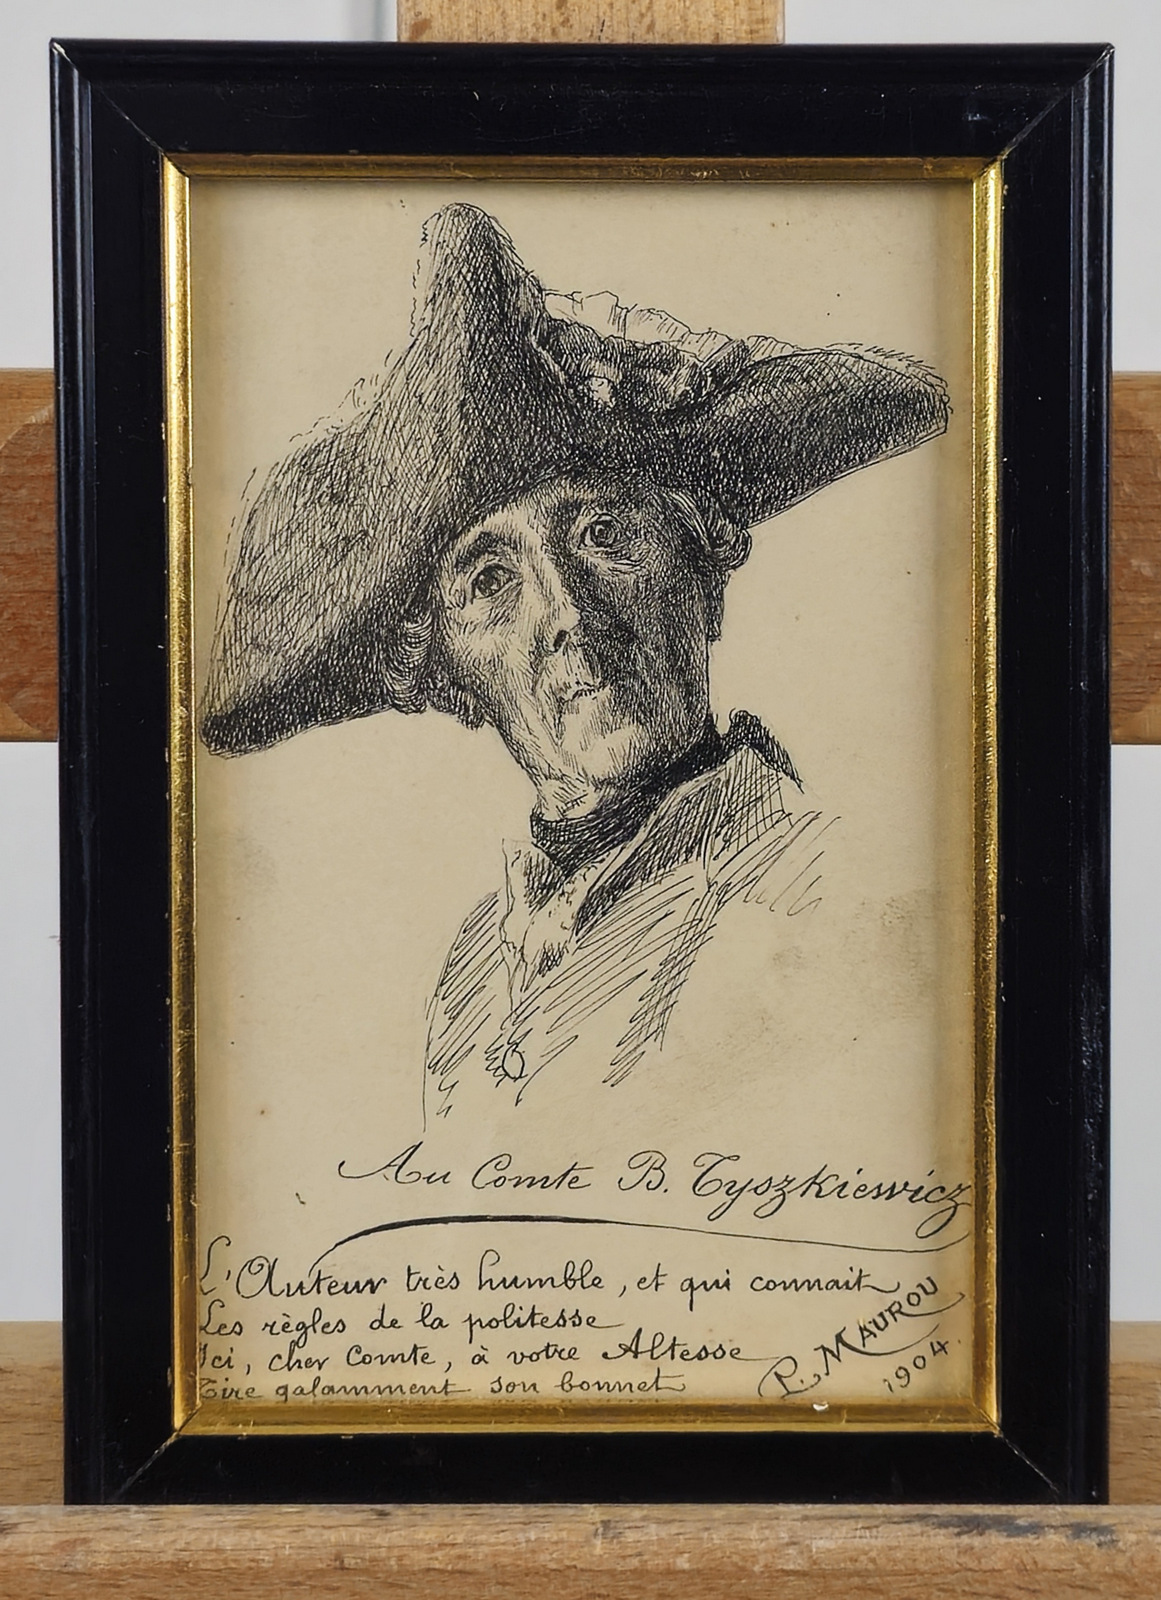 Au Comte B. Tyszkiewicz
L'Auteur très humble, et qui connait
Les règles de la politesse
Ici, cher Comte, à votre Altesse
Tire galamment son bonnet
P. MAUROU
1904.